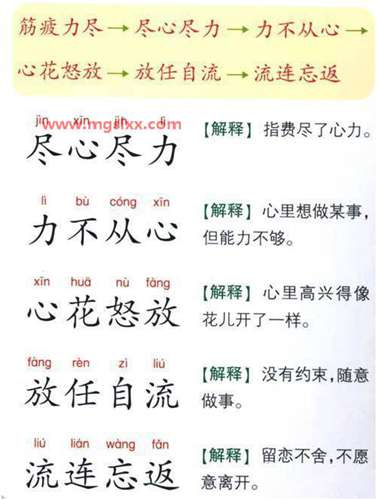 筋疲力尽→尽心尽力→力不从心→
心花怒放→放任自流→流连忘返
jìn xīn jìn lì
www.mgslxx.com
尽心尽力
【解释】指费尽了心力。
lì bù cóng xīn
力不从心
【解释】心里想做某事，
但能力不够。
xīn huā nù fàng
心花怒放
【解释】心里高兴得像
花儿开了一样。
fàng rèn zì liú
放任自流
【解释】没有约束，随意
做事。
liú lián wàng fǎn
流连忘返
【解释】留恋不舍，不愿
意离开。